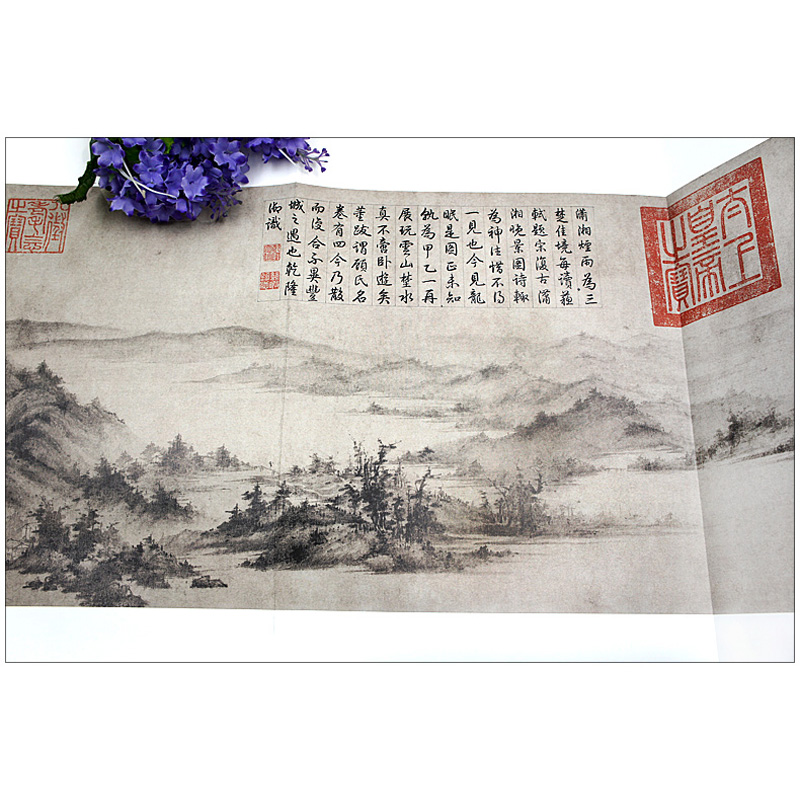 太上皇帝之寶
瀟湘煙雨為三
楚佳境每讀蘇
軾題宋復古瀟
湘晚景圖詩輒
為神往惜不得
一見也今見龍
眠是圖正未知
孰為甲乙一再
展玩雲山楚水
真不啻臥遊矣
董跋謂顧氏名
卷有四今乃散
而復合不異豐
城之遇也乾隆
御識
八徵耄念之寶